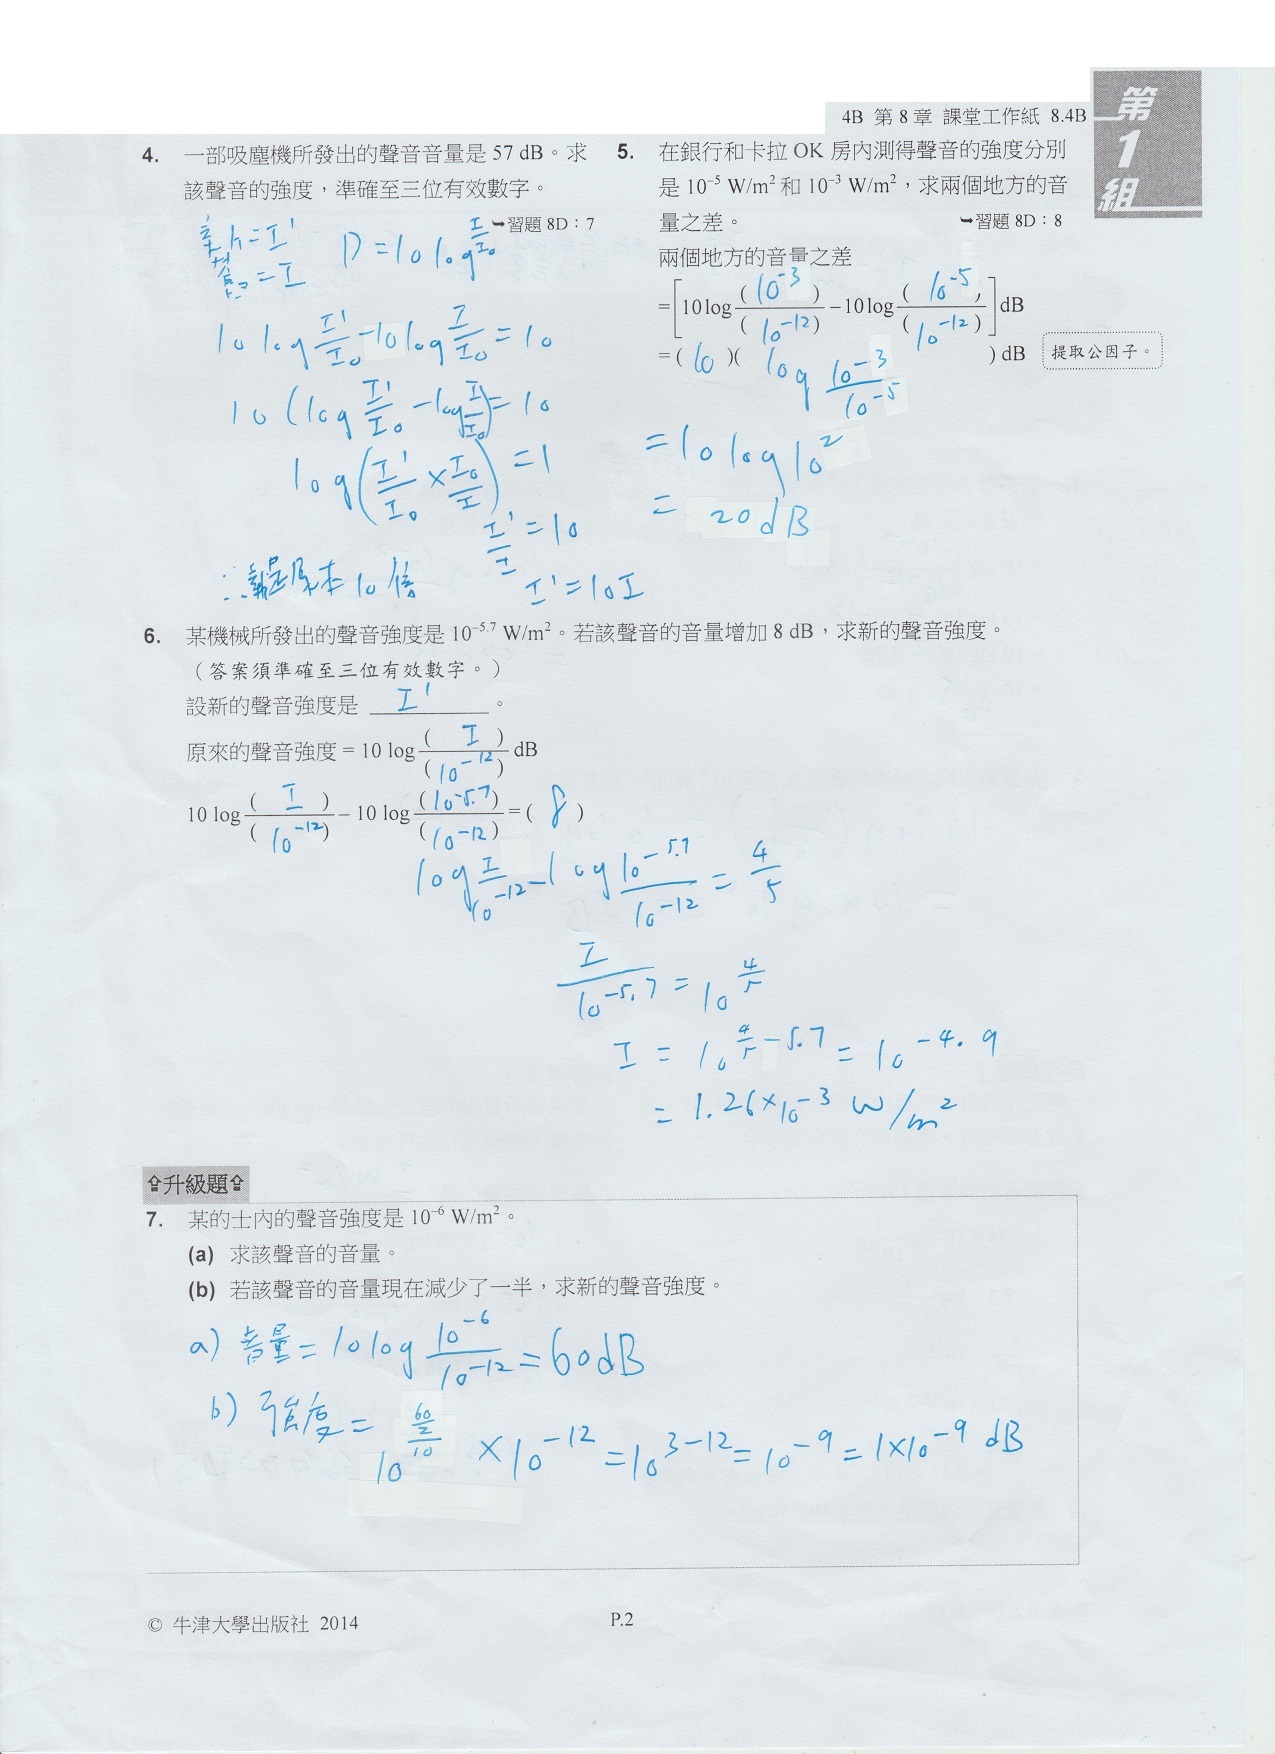 4B 第 8 章 課堂工作紙 8.4B
第1組
4. 一部吸塵機所發出的聲音音量是 57 dB。求
該聲音的強度，準確至三位有效數字。
➥習題 8D：7
= I'
= I
D = 10 log I/I₀
10 log I'/I₀ - 10 log I/I₀ = 10
10 (log I'/I₀ - log I/I₀) = 10
log (I'/I₀ × I₀/I) = 1
I'/I = 10
I' = 10 I
∴ 是原本 10 倍
5. 在銀行和卡拉 OK 房內測得聲音的強度分別
是 10⁻⁵ W/m² 和 10⁻³ W/m²，求兩個地方的音
量之差。
➥習題 8D：8
兩個地方的音量之差
= [10 log (10⁻³)/(10⁻¹²) – 10 log (10⁻⁵)/(10⁻¹²)] dB
= ( 10 )( log 10⁻³/10⁻⁵ ) dB
提取公因子。
= 10 log 10²
= 20 dB
6. 某機械所發出的聲音強度是 10⁻⁵·⁷ W/m²。若該聲音的音量增加 8 dB，求新的聲音強度。
（答案須準確至三位有效數字。）
設新的聲音強度是 I' 。
原來的聲音強度 = 10 log ( I )/(10⁻¹²) dB
10 log ( I )/(10⁻¹²) – 10 log (10⁻⁵·⁷)/(10⁻¹²) = ( 8 )
log I/10⁻¹² - log 10⁻⁵·⁷/10⁻¹² = 4/5
I/10⁻⁵·⁷ = 10^(4/5)
I = 10^(4/5 - 5.7) = 10⁻⁴·⁹
= 1.26 × 10⁻³ W/m²
⇪升級題⇪
7. 某的士內的聲音強度是 10⁻⁶ W/m²。
(a) 求該聲音的音量。
(b) 若該聲音的音量現在減少了一半，求新的聲音強度。
a) 音量 = 10 log 10⁻⁶/10⁻¹² = 60 dB
b) 強度 = 10^((60/2)/10) × 10⁻¹² = 10³⁻¹² = 10⁻⁹ = 1×10⁻⁹ dB
© 牛津大學出版社 2014
P.2